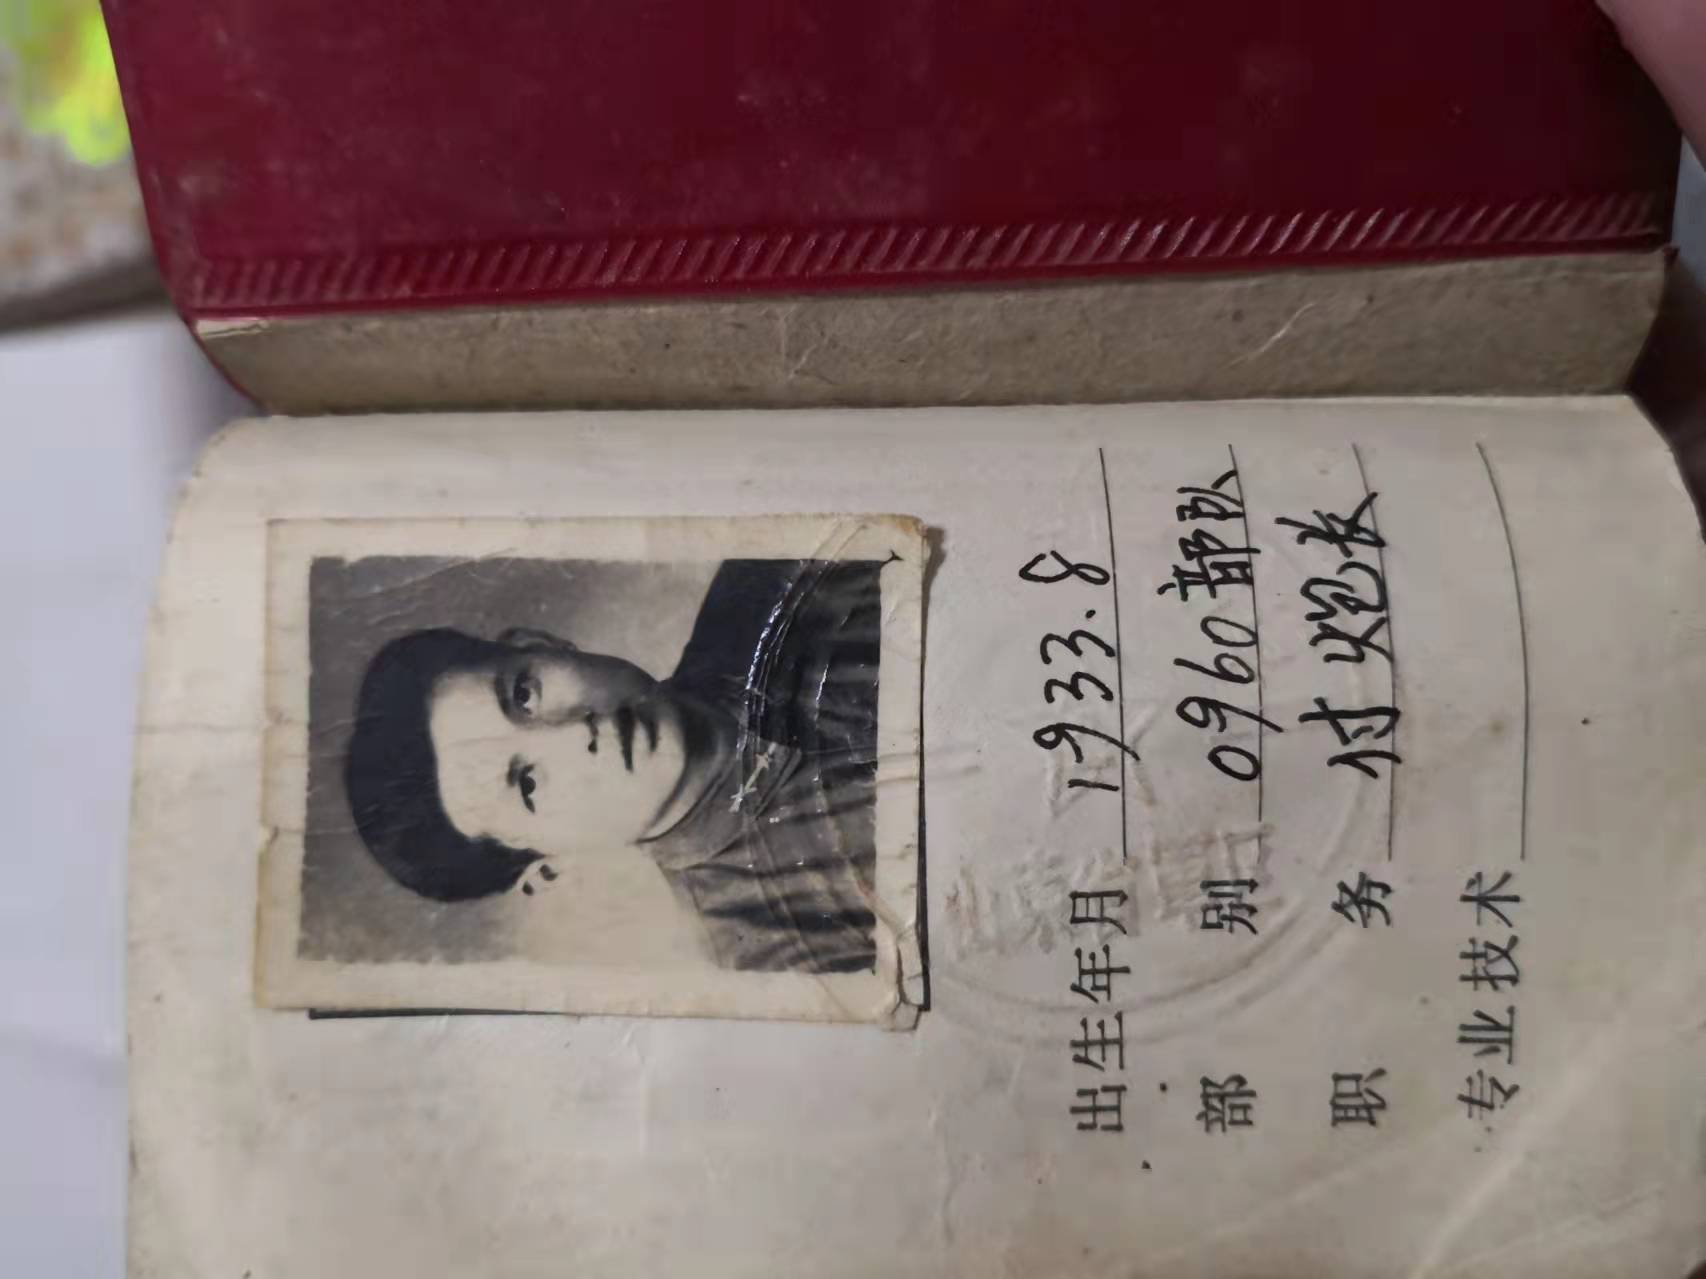 出生年月 1933.8
部别 0960部队
职务 付炮长
专业技术